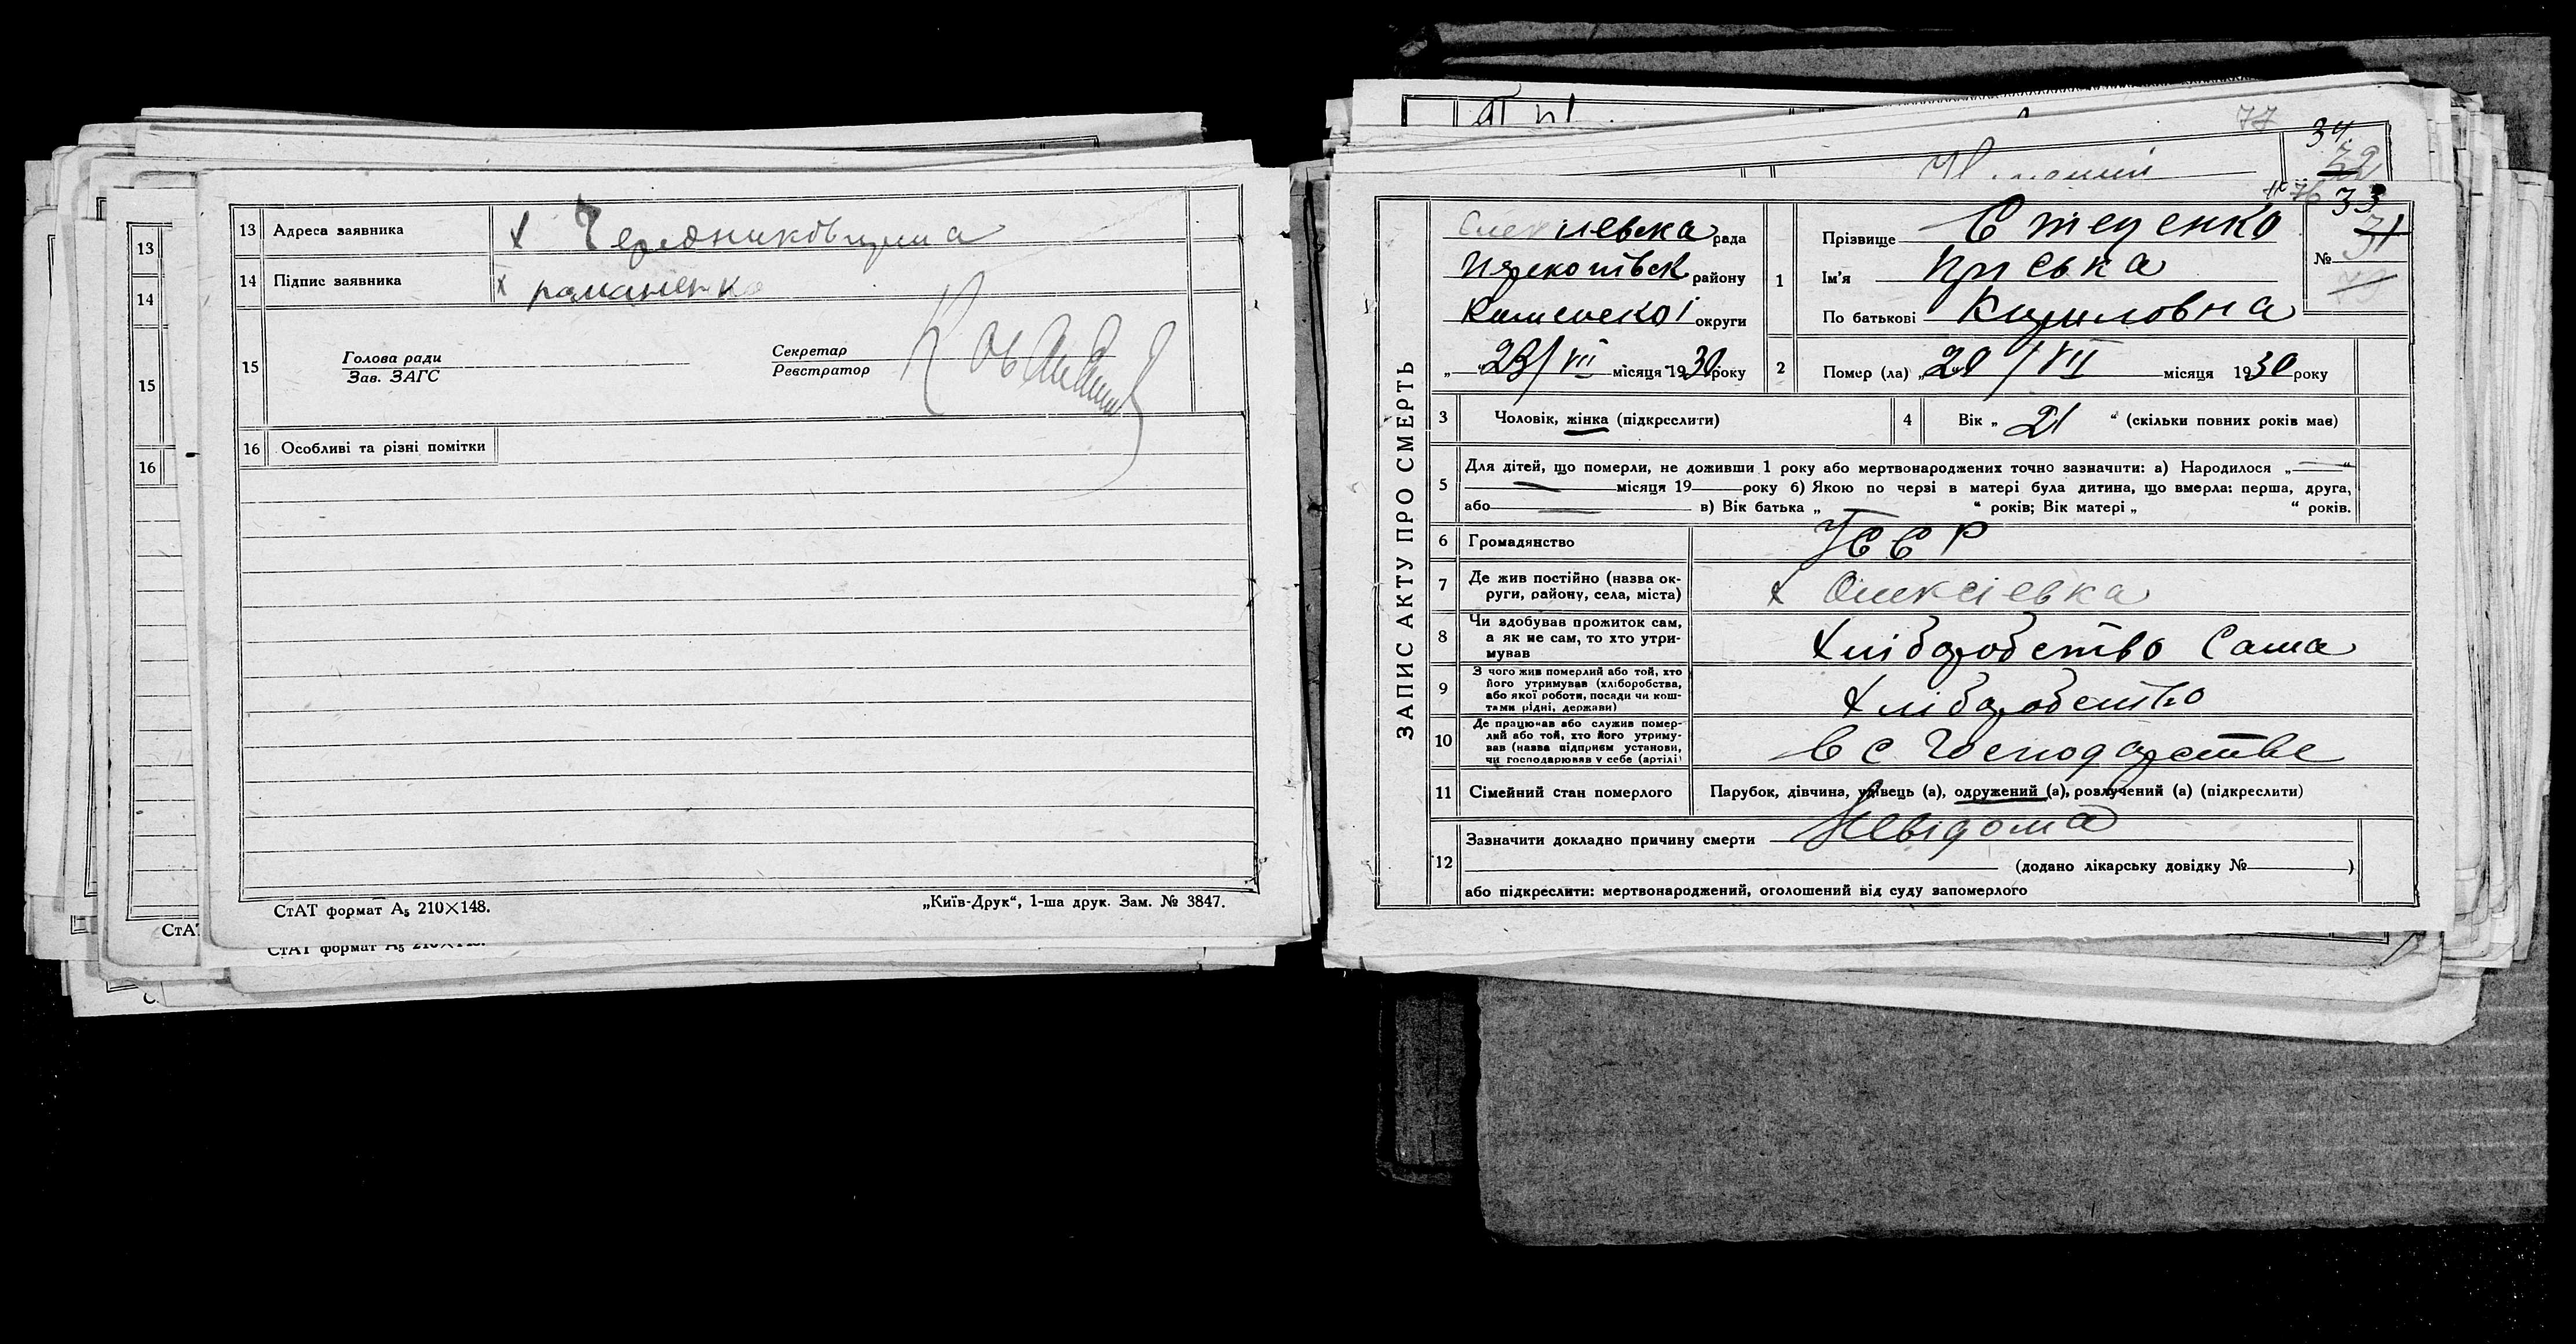 13 Адреса заявника х Чередниковщина
14 Підпис заявника х романенко
15 Голова ради
Зав. ЗАГС
Секретар
Реєстратор
16 Особливі та різні помітки
СтАТ формат А₅ 210×148.
„Київ-Друк“, 1-ша друк. Зам. № 3847.
13
14
15
16
СтАТ формат А₅ 210×148.
77
34
72
76 33
ЗАПИС АКТУ ПРО СМЕРТЬ
рада
району
округи
„23/VII місяця 1930 року
1 Прізвище Стеценко
Ім'я Приська
По батькові Кириловна
№ 71
2 Помер (ла) „20/VII місяця 1930 року
3 Чоловік, жінка (підкреслити)
4 Вік „ 21 “ (скільки повних років мав)
5 Для дітей, що померли, не доживши 1 року або мертвонароджених точно зазначити: а) Народилося „ — “
— місяця 19 року б) Якою по черзі в матері була дитина, що вмерла: перша, друга,
або — в) Вік батька „ “ років; Вік матері „ “ років.
6 Громадянство УССР
7 Де жив постійно (назва ок-
руги, району, села, міста) х Олексіевка
8 Чи здобував прожиток сам,
а як не сам, то хто утри-
мував хліборобство Сама
9 З чого жив померлий або той, хто
його утримував (хліборобства,
або якої роботи, посади чи кош-
тами рідні, держави) хліборобство
10 Де працював або служив помер-
лий або той, хто його утриму-
вав (назва підприєм установи,
чи господарював у себе (артілі) в с господарстве
11 Сімейний стан померлого Парубок, дівчина, удівець (а), одружений (а), розлучений (а) (підкреслити)
12 Зазначити докладно причину смерти Невідома
(додано лікарську довідку № )
або підкреслити: мертвонароджений, оголошений від суду запомерлого